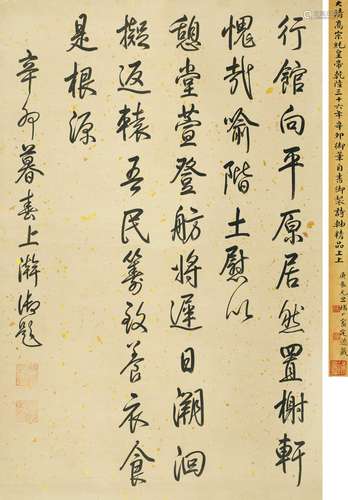 行館向平原居然置榭軒
愧哉喻階土慰以
憩堂萱登舫將遲日溯洄
擬返轅吾民籌致養衣食
是根源
辛卯暮春上澣御題
大清高宗純皇帝乾隆三十六年辛卯御筆自書御製詩軸精品上上